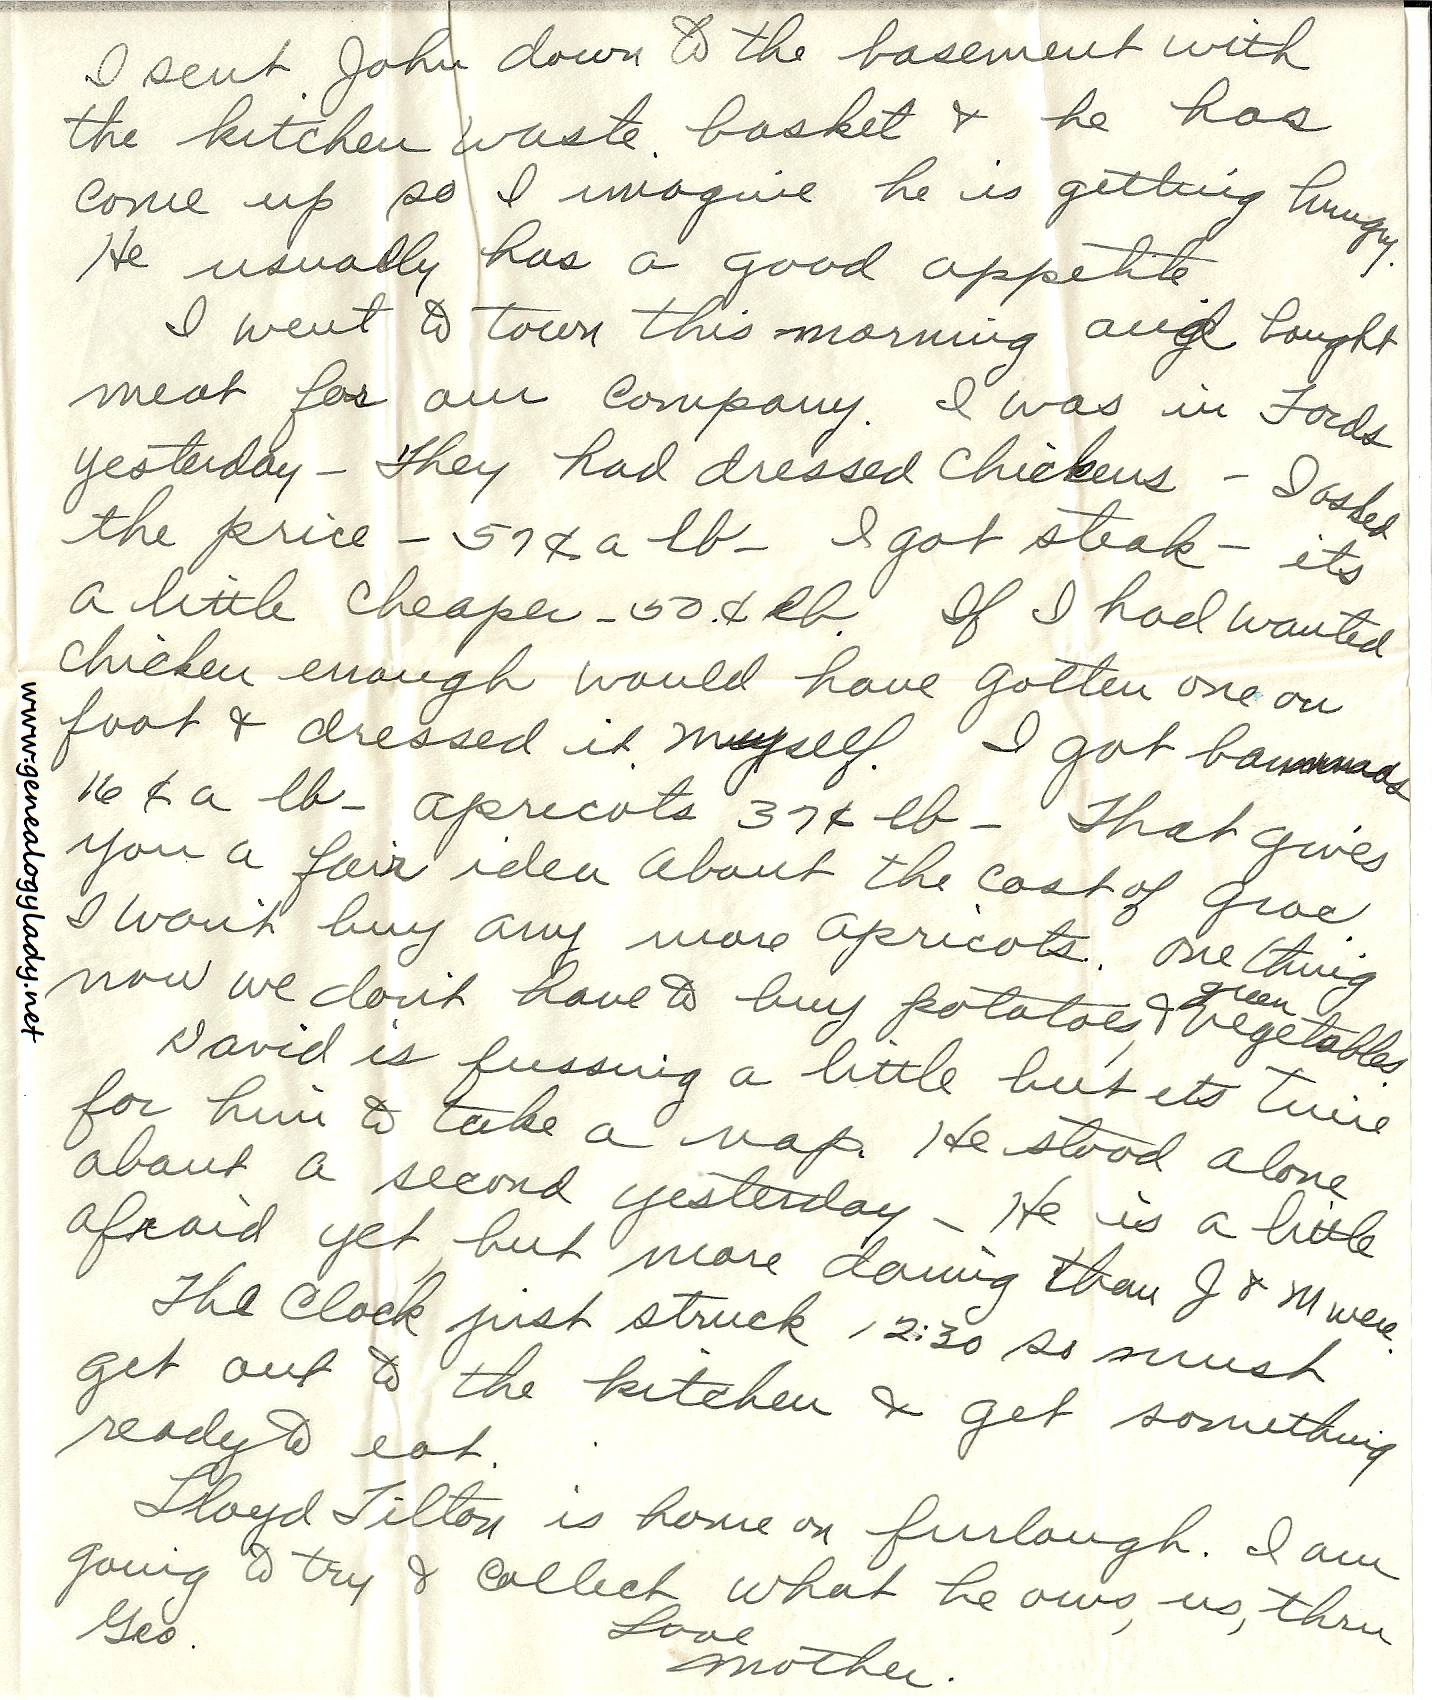 I sent John down to the basement with
the kitchen waste basket & he has
come up so I imagine he is getting hungry.
He usually has a good appetite
I went to town this morning and bought
meat for our company. I was in Fords
yesterday – They had dressed chickens – I asked
the price – 57¢ a lb – I got steak – its
a little cheaper – 50¢ lb. If I had wanted
chicken enough would have gotten one on
foot & dressed it myself. I got bananas
16¢ a lb – apricots 37¢ lb – That gives
you a fair idea about the cost of groc.
I won't buy any more apricots. One thing
now we don't have to buy potatoes & green vegetables.
David is fussing a little but its time
for him to take a nap. He stood alone
about a second yesterday – He is a little
afraid yet, but more daring than J & M were.
The clock just struck 12:30 so must
get out to the kitchen & get something
ready to eat.
Lloyd Tilton is home on furlough. I am
going to try & collect what he ows, us, thru
Geo.
Love
Mother.
www.genealogylady.net